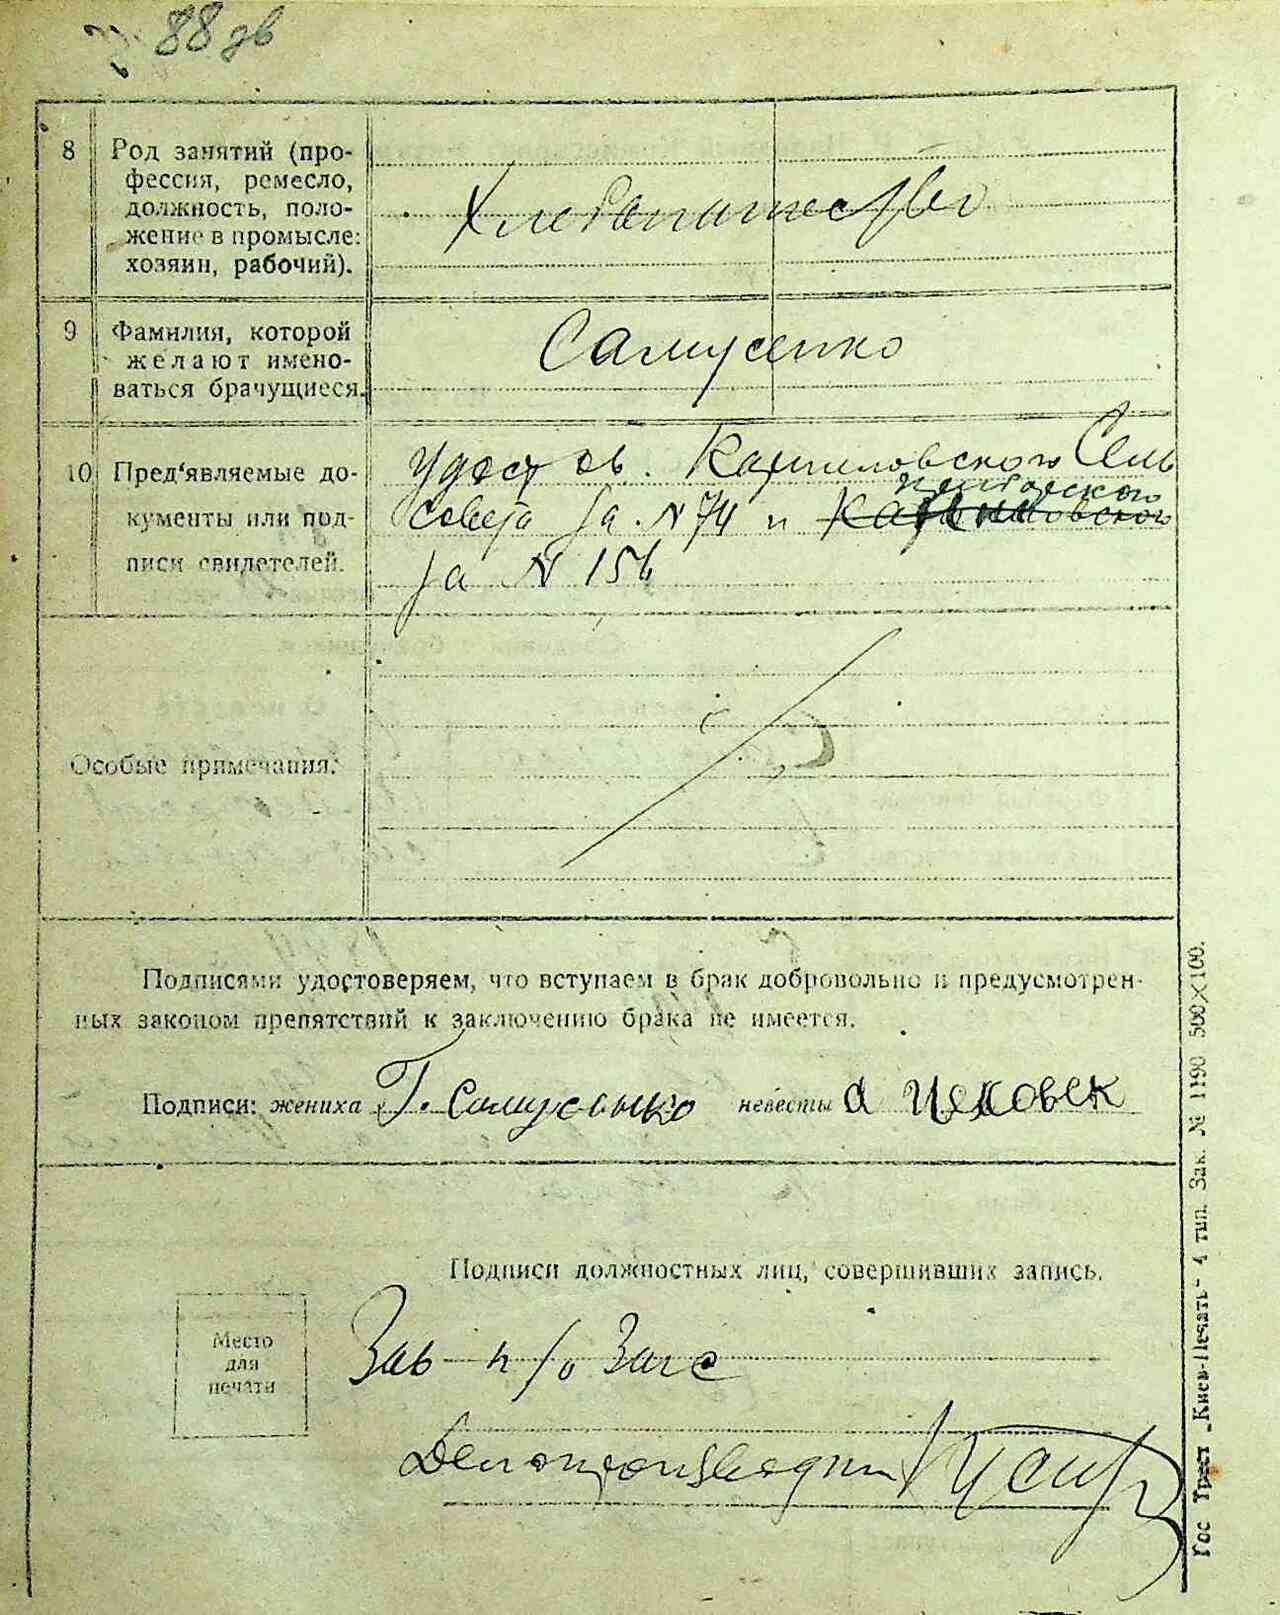 88 зв
8 Род занятий (про-
фессия, ремесло,
должность, поло-
жение в промысле:
хозяин, рабочий).
Хлебопашество
9 Фамилия, которой
желают имено-
ваться брачущиеся.
Самусенко
10 Пред'являемые до-
кументы или под-
писи свидетелей.
Удостов. Карпиловского Сель
совета за № 74 и
за № 156
Особые примечания:
Подписями удостоверяем, что вступаем в брак добровольно и предусмотрен-
ных законом препятствий к заключению брака не имеется.
Подписи: жениха Г. Самусенко невесты а Цековек
Подписи должностных лиц, совершивших запись.
Место
для
печати
Зав п/о Загс
Делопроизводит
Гос Трест „Киев-Печать“ 4 тип. Зак. № 1190 500×100.